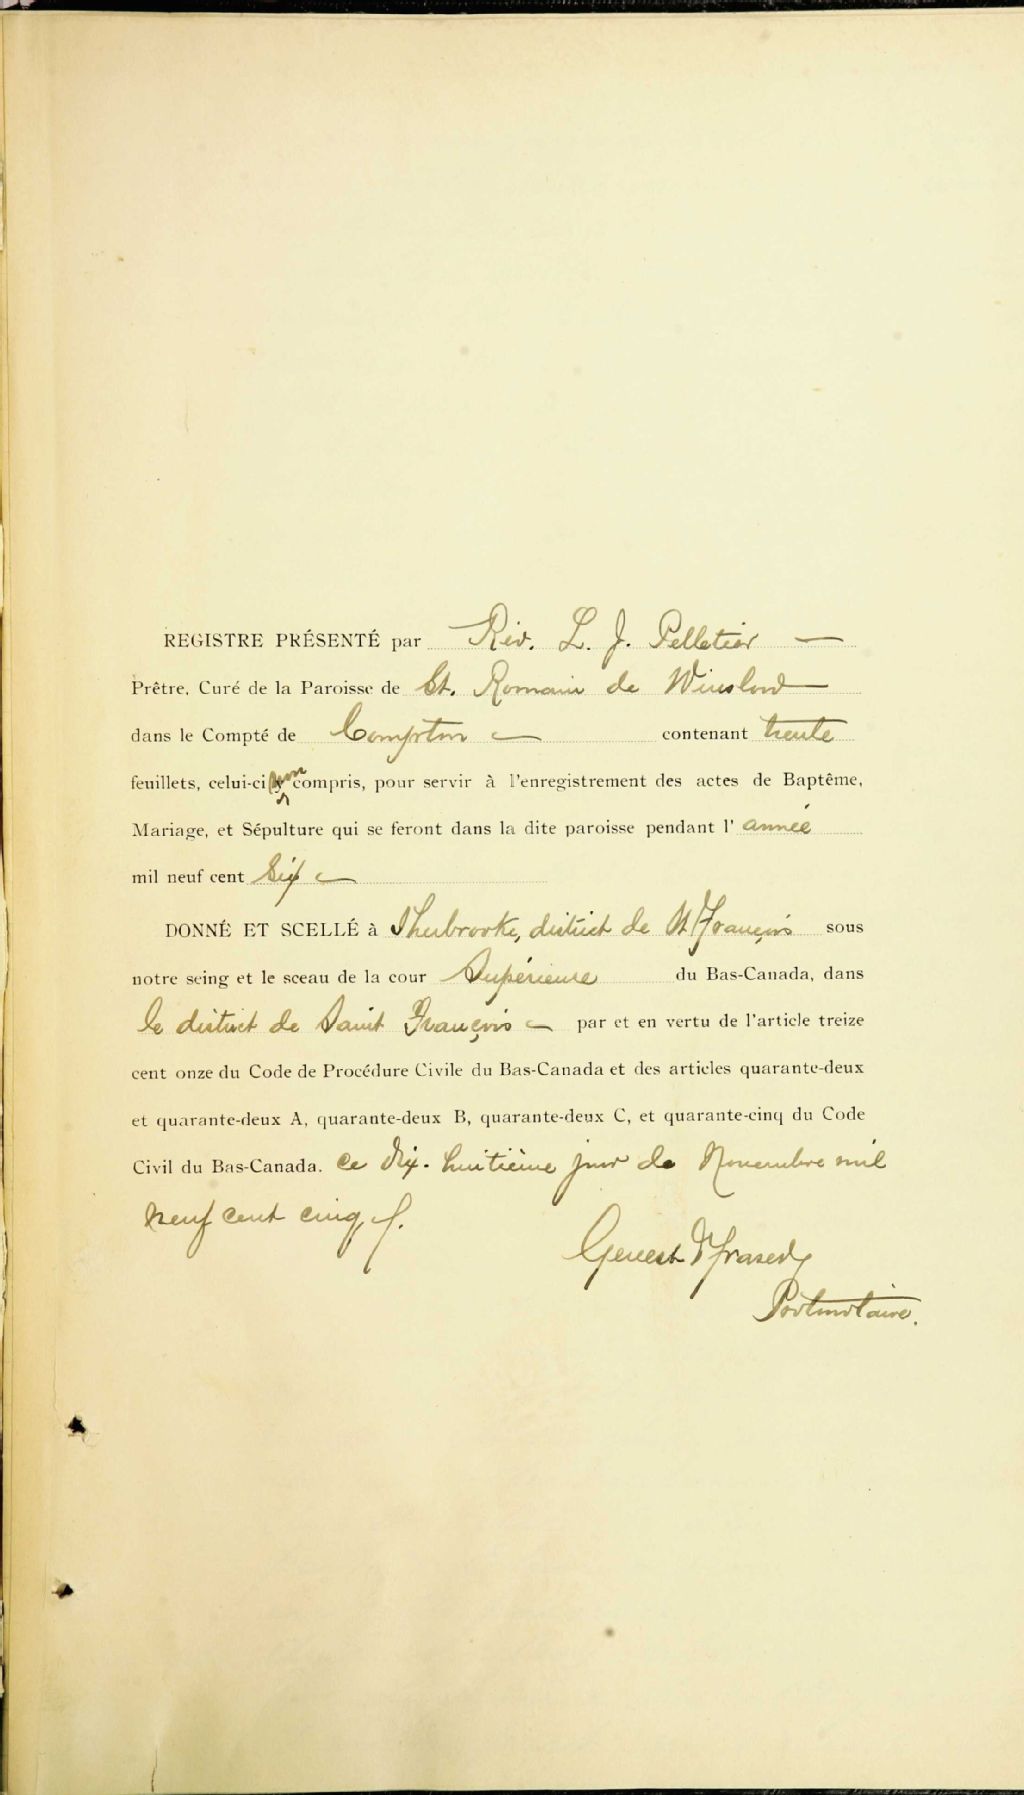 REGISTRE PRÉSENTÉ par Rév. L. J. Pelletier
Prêtre, Curé de la Paroisse de St. Romain de Winslow
dans le Compté de Compton contenant trente
feuillets, celui-ci non compris, pour servir à l'enregistrement des actes de Baptême,
Mariage, et Sépulture qui se feront dans la dite paroisse pendant l' année
mil neuf cent Six
DONNÉ ET SCELLÉ à Sherbrooke, district de St François sous
notre seing et le sceau de la cour Supérieure du Bas-Canada, dans
le district de Saint François par et en vertu de l'article treize
cent onze du Code de Procédure Civile du Bas-Canada et des articles quarante-deux
et quarante-deux A, quarante-deux B, quarante-deux C, et quarante-cinq du Code
Civil du Bas-Canada. ce dix-huitième jour de Novembre mil
neuf cent cinq
Genest & Fraser
Protonotaire.